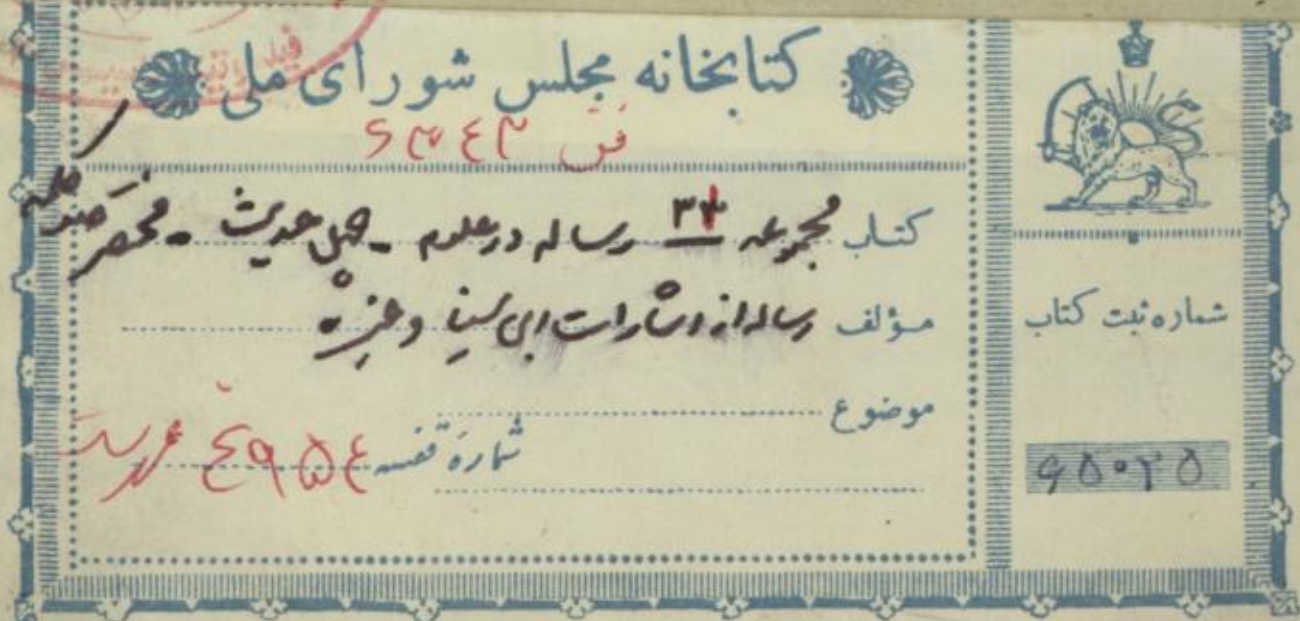 کتابخانه مجلس شورای ملی
ف ۶۳۴۳
کتاب مجموعه ۳۳ رساله در علوم - چهل حدیث - مختصر
مؤلف رساله از اشارات ابی سینا و غیره
موضوع
شماره قفسه ۴۹۵۴
شماره ثبت کتاب
۶۵۰۲۵